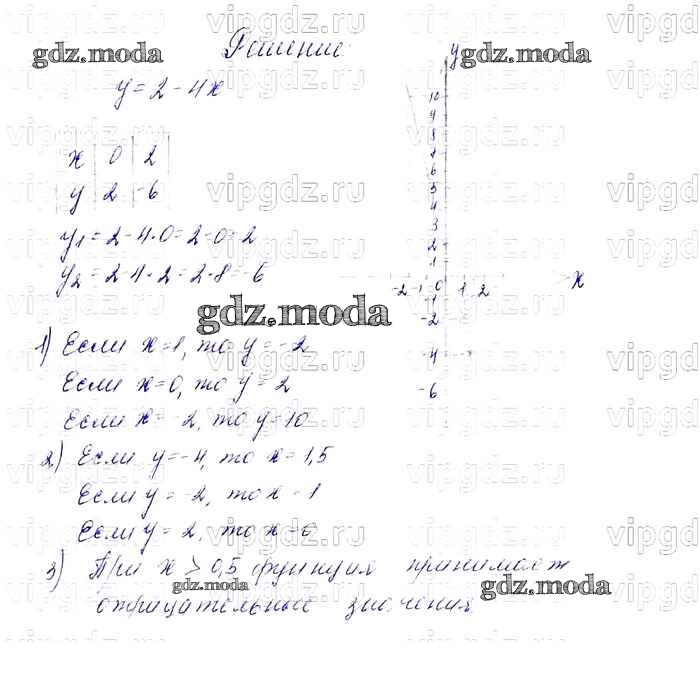 Решение
y = 2 - 4x
x 0 2
y 2 -6
y1 = 2 - 4·0 = 2 - 0 = 2
y2 = 2-4·2 = 2-8 = -6
1) Если x=1, то y=-2
Если x=0, то y=2
Если x=-2, то y=10
2) Если y=-4, то x=1,5
Если y = -2, то x = 1
Если y = 2, то x = 0
3) При x > 0,5 функция принимает
отрицательные значения
y
10
9
8
7
6
5
4
3
2
1
-2 -1 0 1 2 x
-1
-2
-4
-6
gdz.moda
gdz.moda
gdz.moda
gdz.moda
gdz.moda
vipgdz.ru